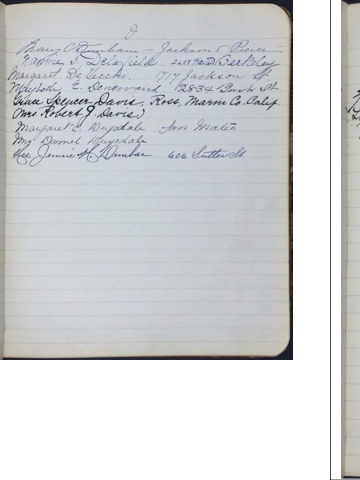 D
Mary C. Dunham - Jackson & Pierce
S. Delafield Berkeley
Margaret De Vecchi. 1717 Jackson St.
E. Donovan 2834 Bush St
Grace Spencer Davis. Ross, Marin Co. Calif
(Mrs. Robert J. Davis)
Margaret E. Drysdale San Mateo
Drysdale
Mrs. Jennie M. Dunbar 606 Sutter St